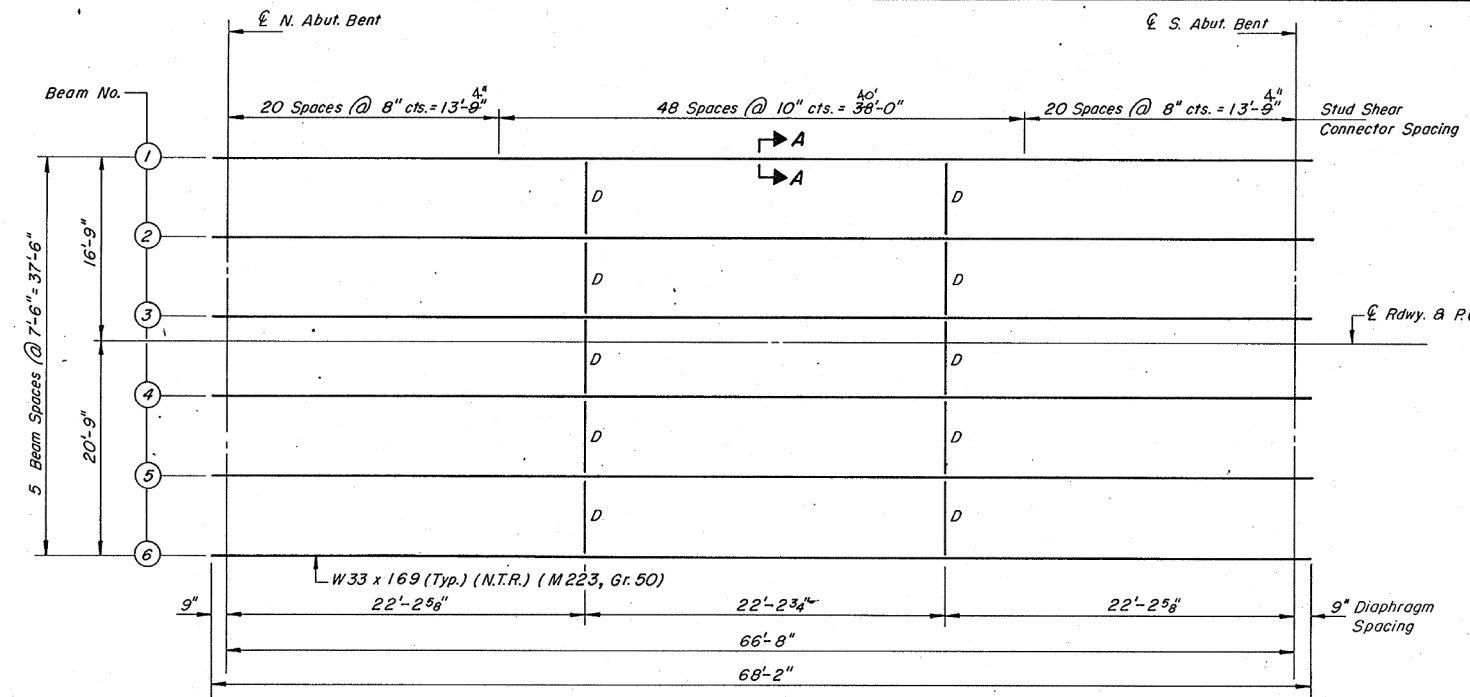 ℄ N. Abut. Bent
℄ S. Abut. Bent
Beam No.
20 Spaces @ 8" cts. = 13'-9" 4"
48 Spaces @ 10" cts. = 38'-0" 40'
20 Spaces @ 8" cts. = 13'-9" 4"
Stud Shear
Connector Spacing
A
A
1
2
3
4
5
6
5 Beam Spaces @ 7'-6" = 37'-6"
16'-9"
20'-9"
D
D
D
D
D
D
D
D
D
D
℄ Rdwy. &
W 33 x 169 (Typ.) (N.T.R.) (M 223, Gr. 50)
9"
22'-2 5/8"
22'-2 3/4"
22'-2 5/8"
9" Diaphragm
Spacing
66'-8"
68'-2"